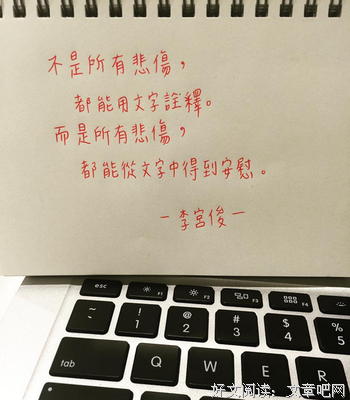 不是所有悲傷，
都能用文字詮釋。
而是所有悲傷，
都能從文字中得到安慰。
－李宮俊－
esc
F1
F2
F3
F4
F5
~
`
!
1
@
2
#
3
$
4
%
5
tab
Q
W
E
R
好文阅读：文章吧网